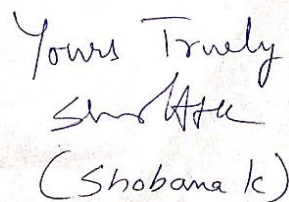 Yours Truely
(Shobana K)